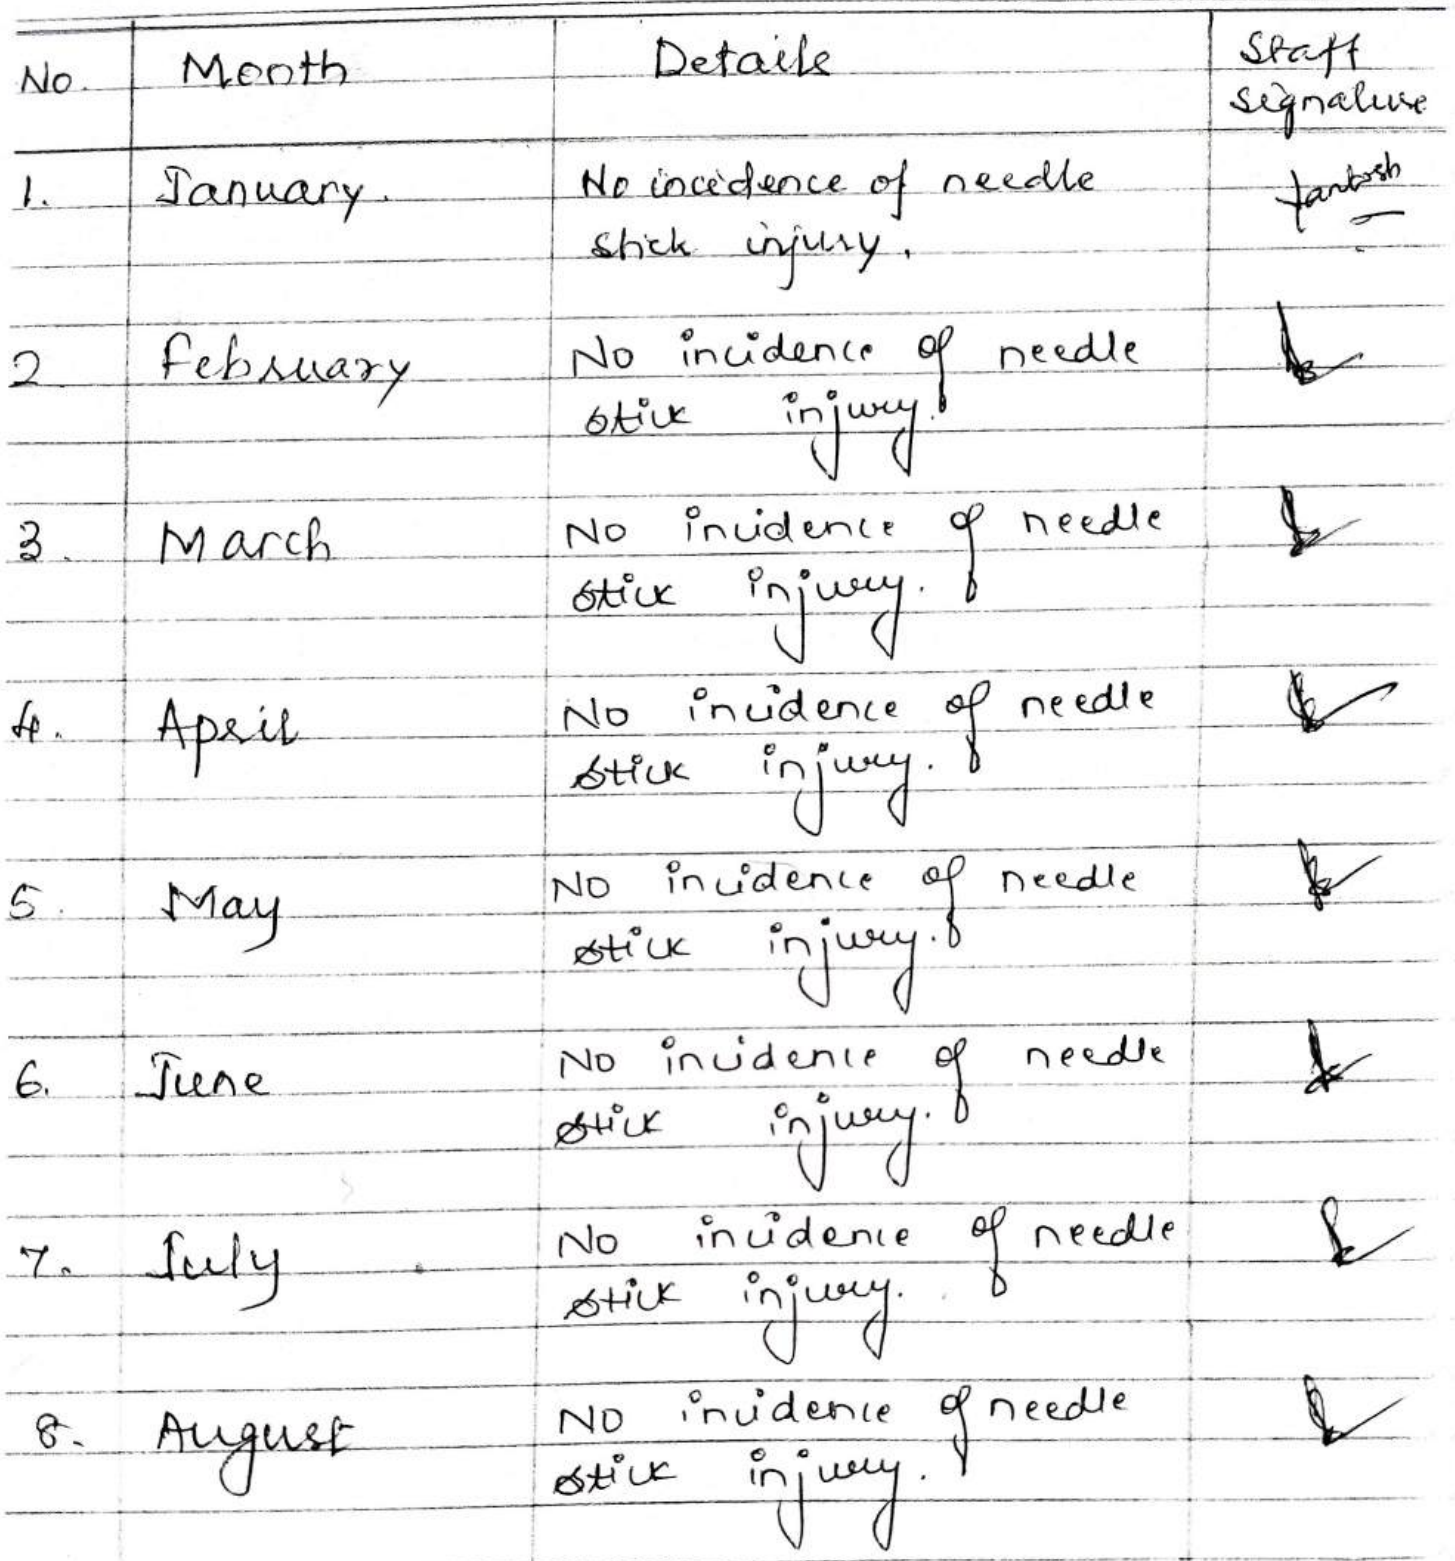 No. Month Details Staff
signature
1. January. No incidence of needle
stick injury.
2 February No incidence of needle
stick injury.
3. March No incidence of needle
stick injury.
4. April No incidence of needle
stick injury.
5. May No incidence of needle
stick injury.
6. June No incidence of needle
stick injury.
7. July No incidence of needle
stick injury.
8. August No incidence of needle
stick injury.